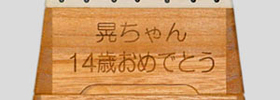 晃ちゃん
14歳おめでとう